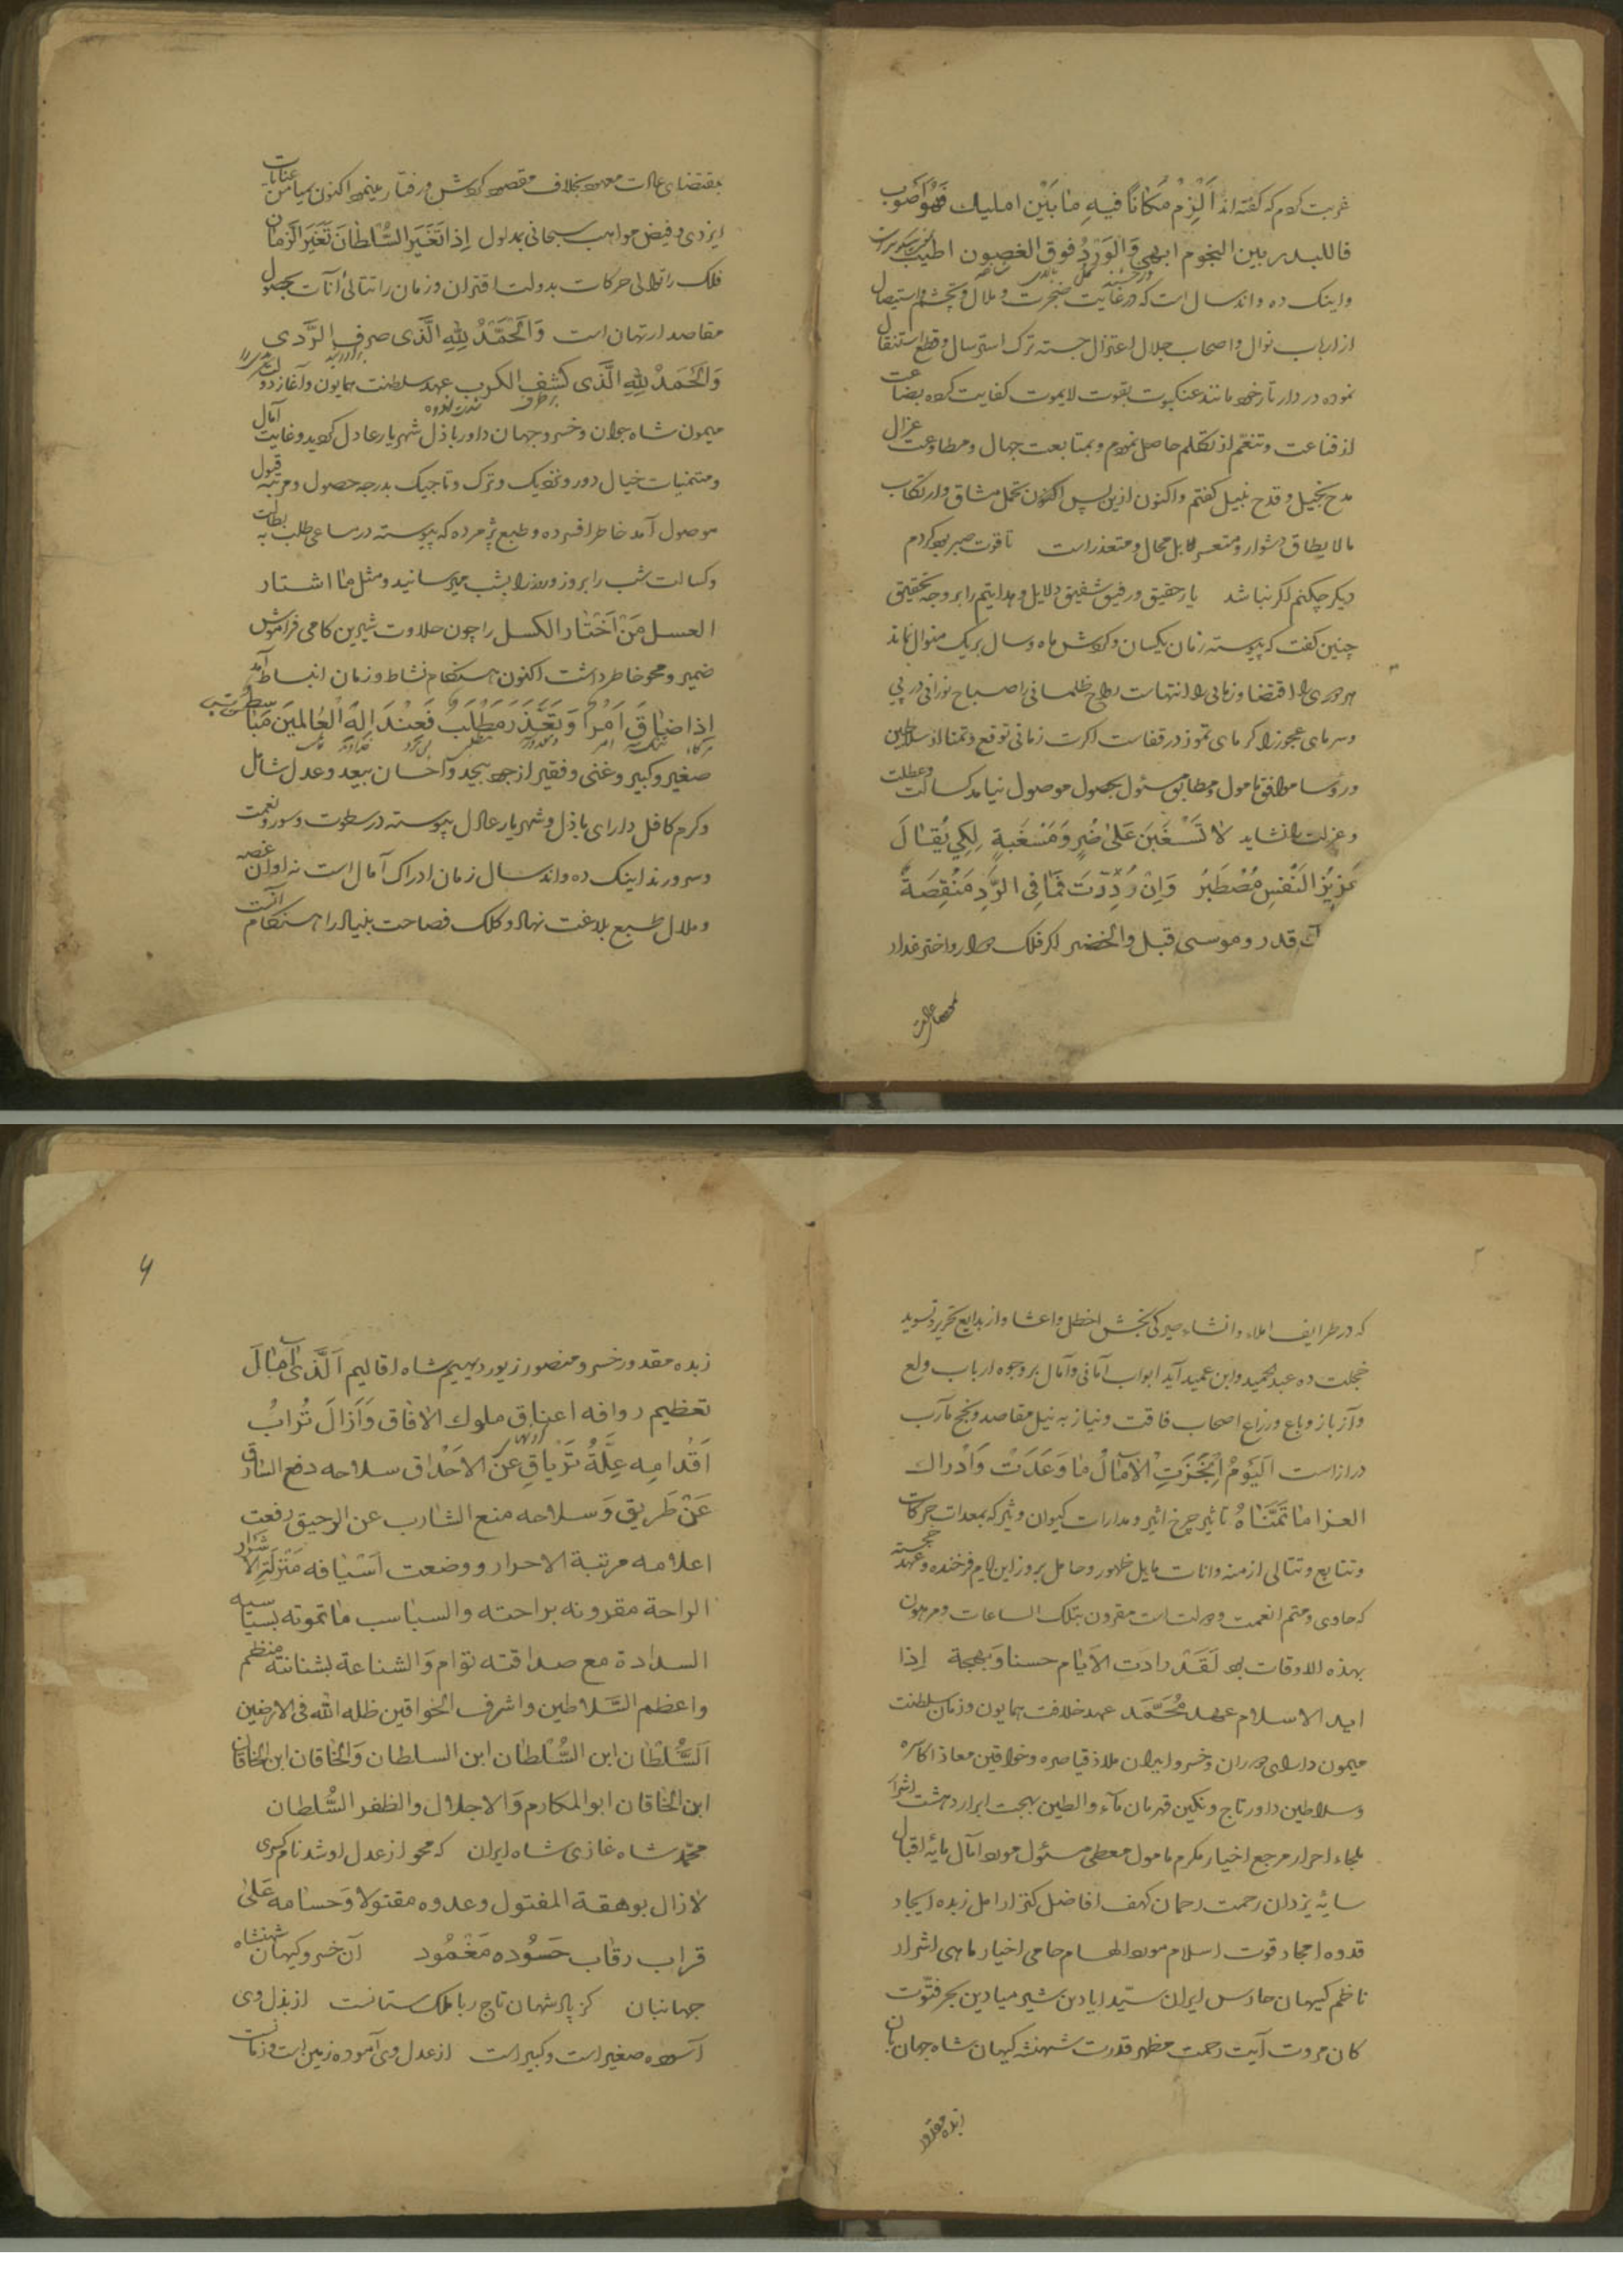 غربت کردم که گفته‌اند اَلْزِمْ مَکاناً فیهِ مٰا بَیْن املیك فَهُوَ اَصْوَب
فاللبدر بین النجوم ابهی وَالْوَرْدُ فوق الغصون اطیب
واینک ده واند سال است که در غایت ضجرت و ملال و تجشم و استیصال
از ارباب نوال واصحاب جلال اعتزال جسته ترک استرسال وقطع استنقال
نموده در دار تار خود مانند عنکبوت بقوت لایموت کفایت کرده بضاعت
از قناعت وتنعّم از تکلم حاصل نمودم وبمتابعت جهال ومطاوعت عزال
مدح بخیل وقدح نبیل گفتم واکنون ازین پس اکنون تحمل مشاق وارتکاب
مالایطاق دشوار ومتعسر لا بل محال ومتعذر است تا قوت صبر بود کردم
دیگر چکنم اگر نباشد یار حقیق ورفیق شفیق دلایل وهدایتم را بر وجه تحقیق
چنین گفت که پیوسته زمان یکسان وگردش ماه وسال بر یک منوال نماند
هر دوری را اقتضا وزمانی را انتهاست رواح ظلمانی را صباح نورانی در پی
وسرمای عجوز را گرمای تموز در قفاست اگرت زمانی توقع وتمنا از سلاطین
ورؤسا موافق مامول ومطابق مسئول بحصول موصول نیامد کسالت وعطلت
وعزلت را نشاید لا تَسْغَبَنَ عَلیٰ ضُرٍ وَمَسْغَبةٍ لِکَی یُقٰالَ
عَزیزُ النَفْسِ مُصْطَبَرُ وَاِنْ رُدِّدْتَ فَمٰا فِی الرَّدِ مَنْقِصَةٌ
قدر وموسی قبل والخضر اگر فلک دوار واختر غدار
بمقتضای عادت معهود بخلاف مقصود گردش ورفتار مینمود اکنون بمیامن عنایات
ایزدی وفیض مواهب سبحانی بمدلول اِذا تَغَیَرَ السُّلطانَ تَغَیَرَ الزَمان
فلک را توالی حرکات بدولت اقتران وزمان را تتالی آنات بحصول
مقاصد ارتهان است وَالْحَمْدُ لِلّٰهِ الَّذی صرف الرَّدی
وَالْحَمْدُ لِلّٰهِ الَّذی کشف الکرب عهد سلطنت همایون وآغاز دولت
میمون شاه جوان وخسرو جهان داور باذل شهریار عادل گردید وغایت آمال
ومتمنیات خیال دور ونزدیک وترک وتاجیک بدرجه حصول ومرتبه قبول
موصول آمد خاطر افسرده وطبع پژمرده که پیوسته در مساعی طلب به بطالت
وکسالت شب را بروز وروز را بشب میرسانید ومثل مٰا اشتار
العسل مَنْ اَخْتٰار الکسل را چون حلاوت شیرین کامی فراموش
ضمیر ومحو خاطر داشت اکنون هنگام نشاط وزمان انبساط آمد
اِذا ضٰاقَ اَمْراً وَتَعَذَرَ مَطْلَب فَعِنْدَ اِلٰهِ الْعٰالَمینَ
صغیر وکبیر وغنی وفقیر از جود بیحد واحسان بیعد وعدل شامل
وکرم کافل دارای باذل وشهریار عادل پیوسته در سطوت وسور ونعمت
وسرورند اینک ده واند سال زمان ادراک آمال است نه اوان غصه
وملال طبع بلاغت نهاد وکلک فصاحت بنیاد را هنگام آنست
که در طرایف املاء وانشاء حیرت بخش اخطل واعشا واز بدایع تحریر وتسوید
خجلت ده عبدالحمید وابن عمید آید ابواب آمانی وآمال بر وجوه ارباب ولع
وآز باز وباع وذراع اصحاب فاقت ونیاز به نیل مقاصد ونجح مآرب
دراز است اَلیَومُ اُنْجِزَتِ الآمٰالُ مٰا وَعَدَتْ وَاَدْراك
العزا ما تَمَنّٰاهُ تاثیر چرخ اثیر ومدارات کیوان وتیر که بمعدات حرکات
وتتابع وتتالی ازمنه وانات مایل ظهور وحامل بروز این ایام فرخنده وعهد خجسته
که حاوی ومتمم نعمت ودولت است مقرون بتلک الساعات ومرهون
بهذه الاوقات بود لَقَدْ زادَت الاَیّام حسنا وَبهجة اِذا
امد الاسلام عهد مُحَمَّد عهد خلافت همایون وزمان سلطنت
میمون دارای دوران وخسرو ایران ملاذ قیاصره وخواقین معاذ اکاسره
وسلاطین داور تاج ونگین قهرمان ماء والطین بهجت ابرار دهشت اشرار
ملجاء احرار مرجع اخیار مکرم مامول معطی مسئول مورد آمال مایه اقبال
سایه یزدان رحمت رحمان کهف افاضل کنز ارامل زبده ایجاد
قدوه امجاد قوت اسلام مورد الهام حامی اخیار ماحی اشرار
ناظم کیهان حارس ایران سیّد ایادین شیر میادین بحر فتوّت
کان مروت آیت رحمت مظهر قدرت شهنشه کیهان شاه جهانبان
زبده مقدور
۴
زبده مقدور خسرو منصور زیور دیهیم شاه اقالیم اَلَّذی اَمٰالَ
تعظیم روافه اعناق ملوك الافاق وَاَزالَ تُرابُ
اَقْدامِه عِلَّةُ تَرْیاقِ عَنْ الاَحْداق سلاحه دفع السّارق
عَنْ طَریق وَسلاحه منع الشارب عن الرحیق رفعت
اعلامه مرتبة الاحرار ووضعت اَسْیافه مَنْزِلَة الاشرار
الراحة مقرونه براحته والسباسب ماتموته بسیاسیه
السدادة مع صداقته توام وَالشناعة بشنانته منظم
واعظم السَّلاطین واشرف الخواقین ظله الله فی الارضین
اَلسُّلْطٰان ابن السُّلْطٰان ابن السلطان وَالخٰاقان ابن الخاقان
ابن الخاقان ابوالمکارم وَالاجلال والظفر السُّلطان
محمّد شاه غازی شاه ایران که محو از عدل او شد نام کسری
لازال بوهقة المفتول وعدوه مقتولا وَحسامه عَلیٰ
قراب رقاب حَسُوده مَغْمُود آن خسرو کیهان شهنشاه
جهانبان کز پادشهان تاج ربا ملک ستانست از بذل وی
آسوده صغیر است وکبیر است از عدل وی آموده زمین است وزمانست